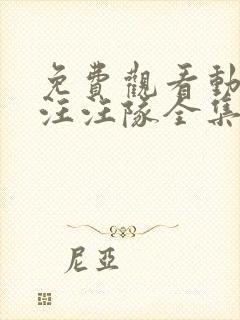 免費觀看動
汪汪隊全集
尼亞